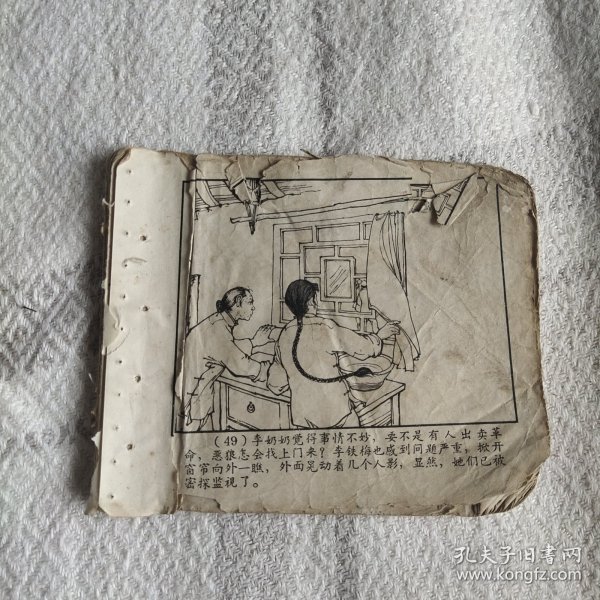 (49)李奶奶觉得事情不妙，要不是有人出卖革
命，恶狼怎会找上门来？李铁梅也感到问题严重，掀开
窗帘向外一瞧，外面晃动着几个人影，显然，她们已被
密探监视了。
孔夫子旧书网
www.kongfz.com